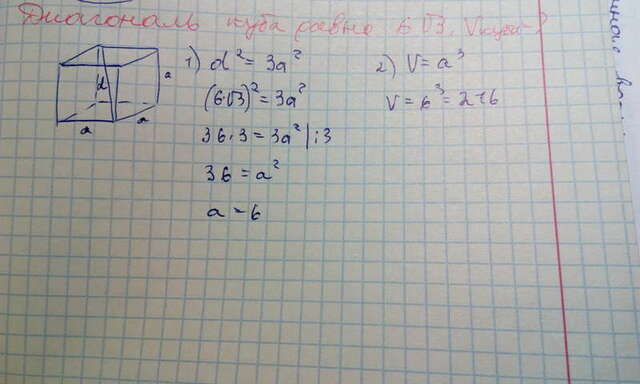 Диагональ куба равна 6√3, Vкуба-?
d
a
a
a
1) d² = 3a²
(6√3)² = 3a²
36·3 = 3a² |:3
36 = a²
a = 6
2) V = a³
V = 6³ = 216